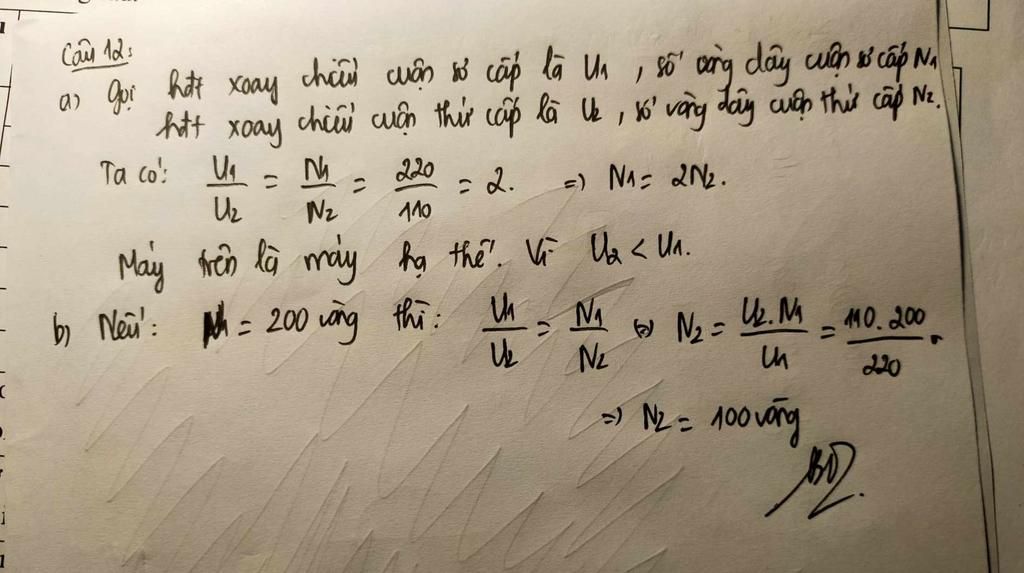 Câu 12:
a) Gọi hđt xoay chiều cuộn sơ cấp là U1, số vòng dây cuộn sơ cấp N1
hđt xoay chiều cuộn thứ cấp là U2, số vòng dây cuộn thứ cấp N2.
Ta có: U1/U2 = N1/N2 = 220/110 = 2. => N1 = 2N2.
Máy trên là máy hạ thế. Vì U2 < U1.
b) Nếu: N1 = 200 vòng thì: U1/U2 = N1/N2 <=> N2 = U2.N1/U1 = 110.200/220.
=> N2 = 100 vòng